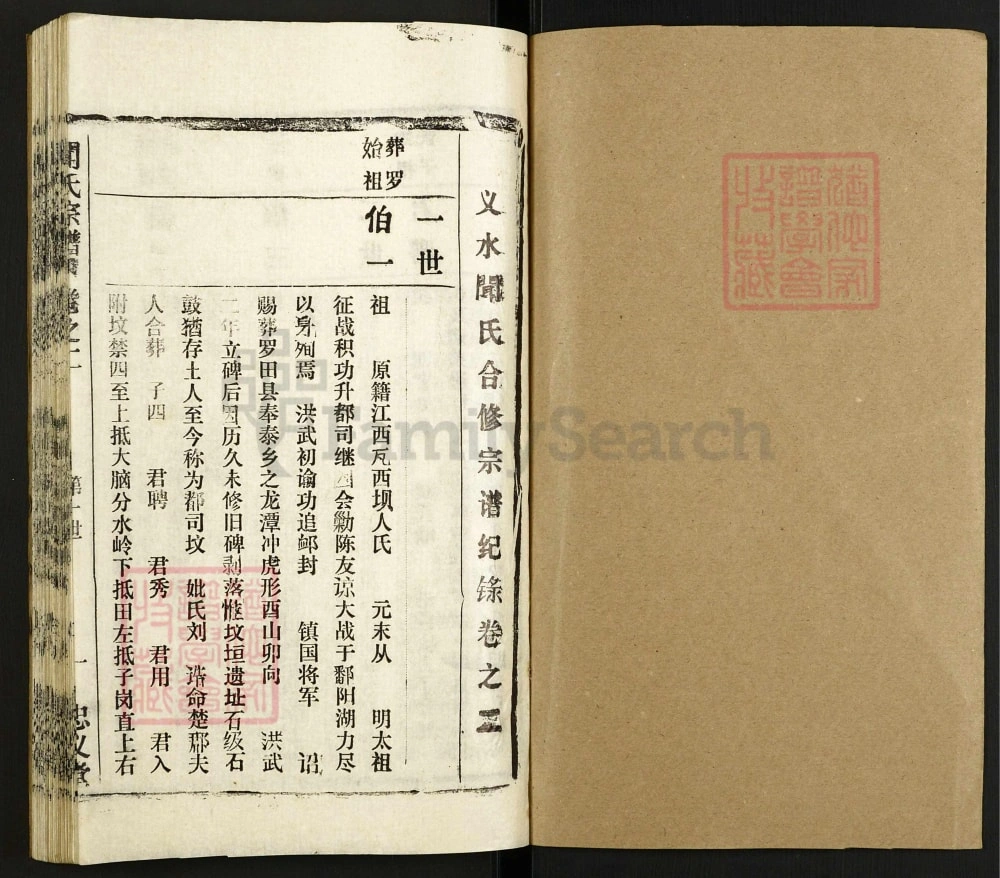 义水聞氏合修宗谱纪録卷之
一世
葬罗
始祖
伯一
祖 原籍江西瓦西坝人氏 元末从 明太祖
征战积功升都司继 会勦陈友谅大战于鄱阳湖力尽
以身殉焉 洪武初谕功追邮封 镇国将军 诏
赐葬罗田县奉泰乡之龙潭冲虎形酉山卯向 洪武
二年立碑后因历久未修旧碑剥落惟坟垣遗址石级石
鼓犹存土人至今称为都司坟 妣氏刘 诰命楚郡夫
人合葬 子四 君聘 君秀 君用 君入
附坟禁四至上抵大脑分水岭下抵田左抵子岗直上右
氏宗譜 卷之
第一世
一 忠义堂
猶他家譜學會特藏
猶他家譜學會特藏
FamilySearch